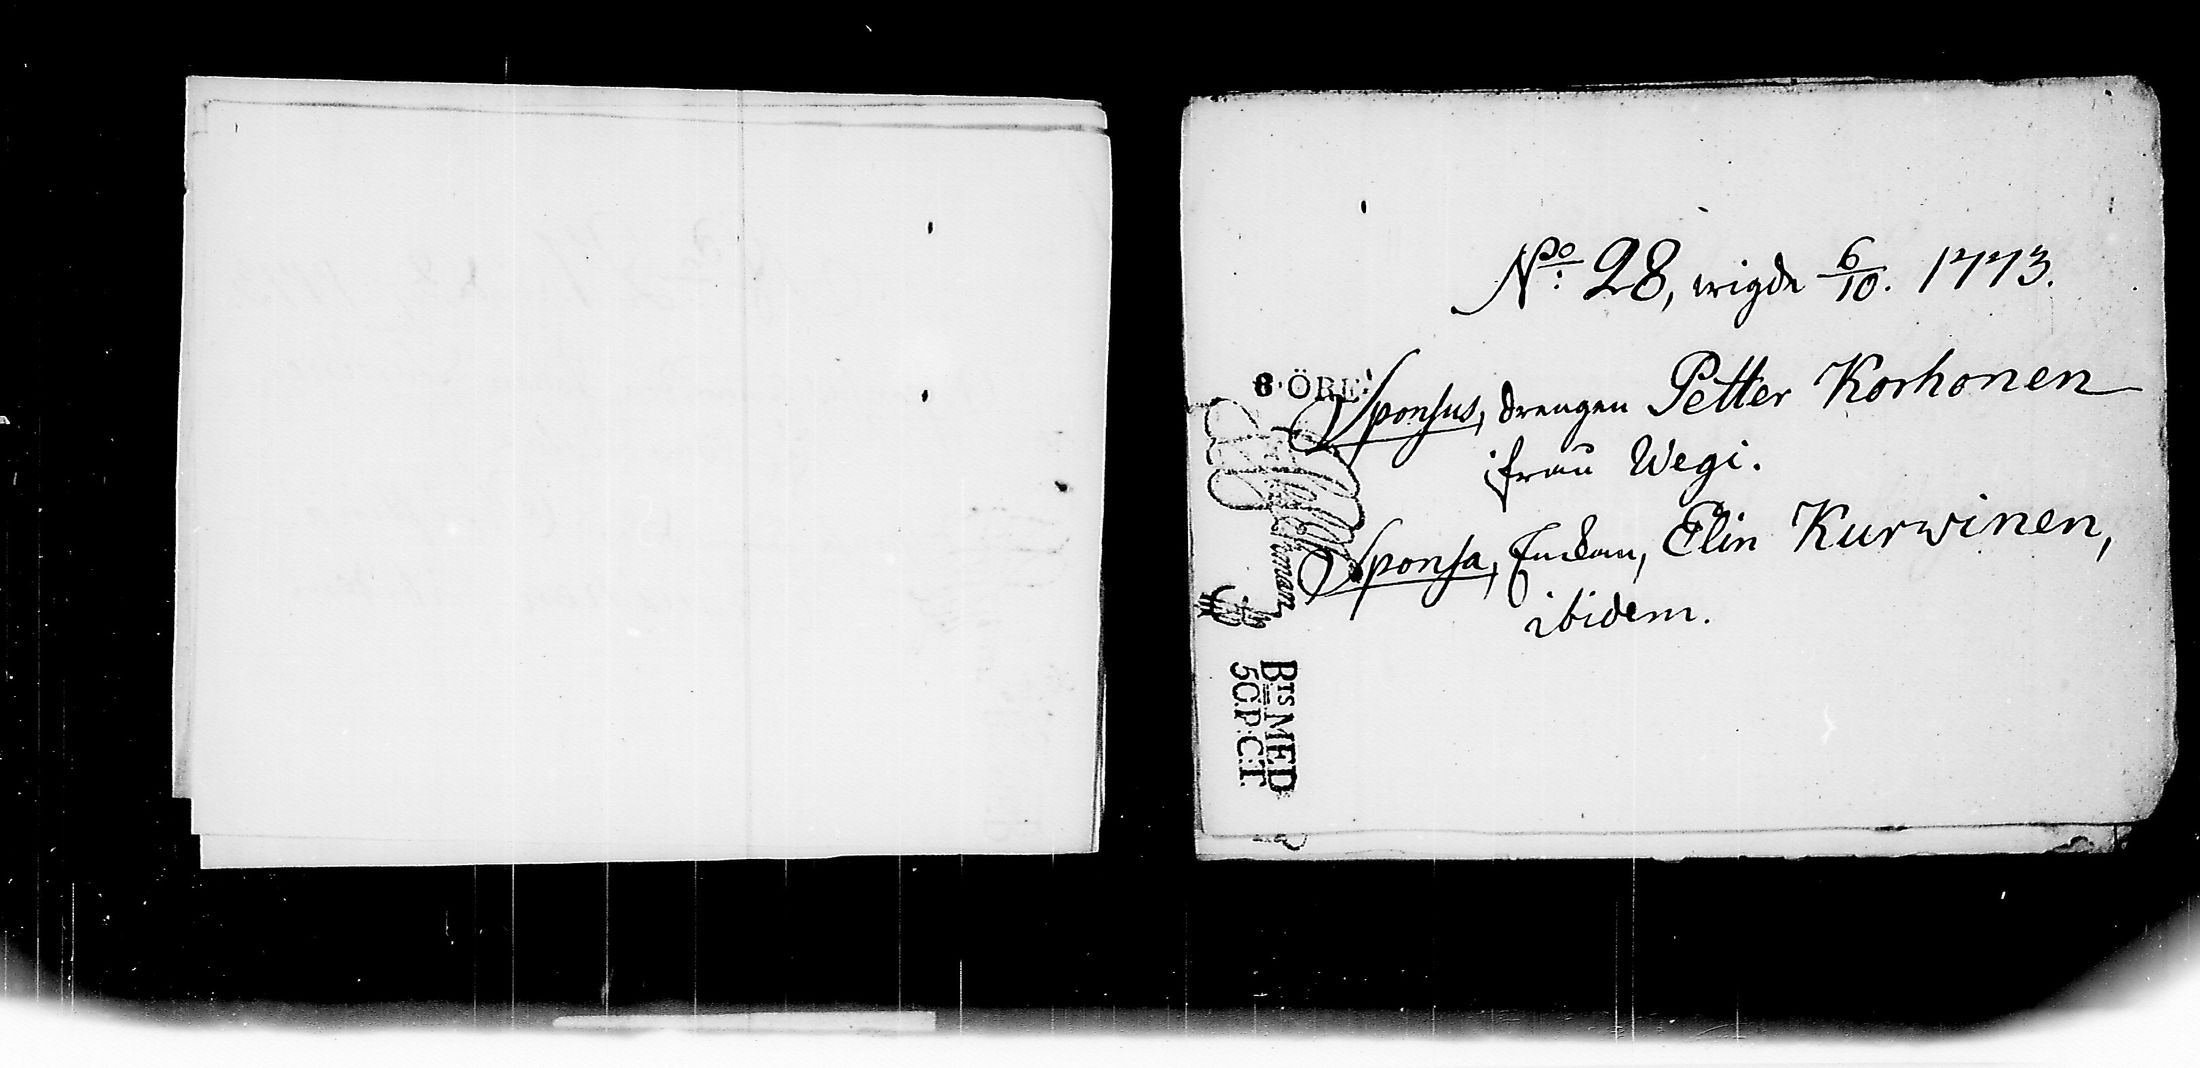 No: 28, wigde 6/10. 1773.
8. ÖRE:
Sponsus, drengen Petter Korhonen
ifrån Wegi.
Sponsa, Enckan, Elin Kurwinen,
ibidem.
BTS MED
50.P:C:T.